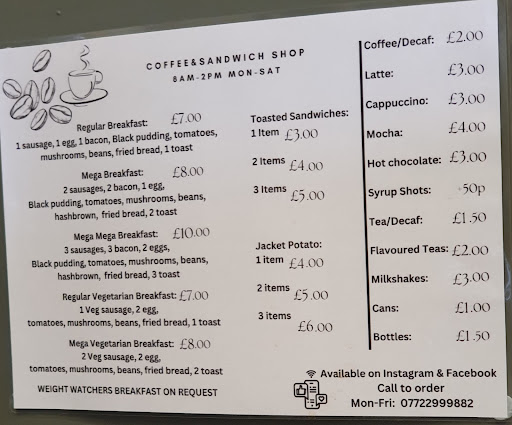 COFFEE&SANDWICH SHOP
8AM-2PM MON-SAT
Regular Breakfast: £7.00
1 sausage, 1 egg, 1 bacon, Black pudding, tomatoes,
mushrooms, beans, fried bread, 1 toast
Mega Breakfast: £8.00
2 sausages, 2 bacon, 1 egg,
Black pudding, tomatoes, mushrooms, beans,
hashbrown, fried bread, 2 toast
Mega Mega Breakfast: £10.00
3 sausages, 3 bacon, 2 eggs,
Black pudding, tomatoes, mushrooms, beans,
hashbrown, fried bread, 3 toast
Regular Vegetarian Breakfast: £7.00
1 Veg sausage, 2 egg,
tomatoes, mushrooms, beans, fried bread, 1 toast
Mega Vegetarian Breakfast: £8.00
2 Veg sausage, 2 egg,
tomatoes, mushrooms, beans, fried bread, 2 toast
WEIGHT WATCHERS BREAKFAST ON REQUEST
Toasted Sandwiches:
1 Item £3.00
2 Items £4.00
3 Items £5.00
Jacket Potato:
1 item £4.00
2 items £5.00
3 items £6.00
Coffee/Decaf: £2.00
Latte: £3.00
Cappuccino: £3.00
Mocha: £4.00
Hot chocolate: £3.00
Syrup Shots: 50p
Tea/Decaf: £1.50
Flavoured Teas: £2.00
Milkshakes: £3.00
Cans: £1.00
Bottles: £1.50
Available on Instagram & Facebook
Call to order
Mon-Fri: 07722999882